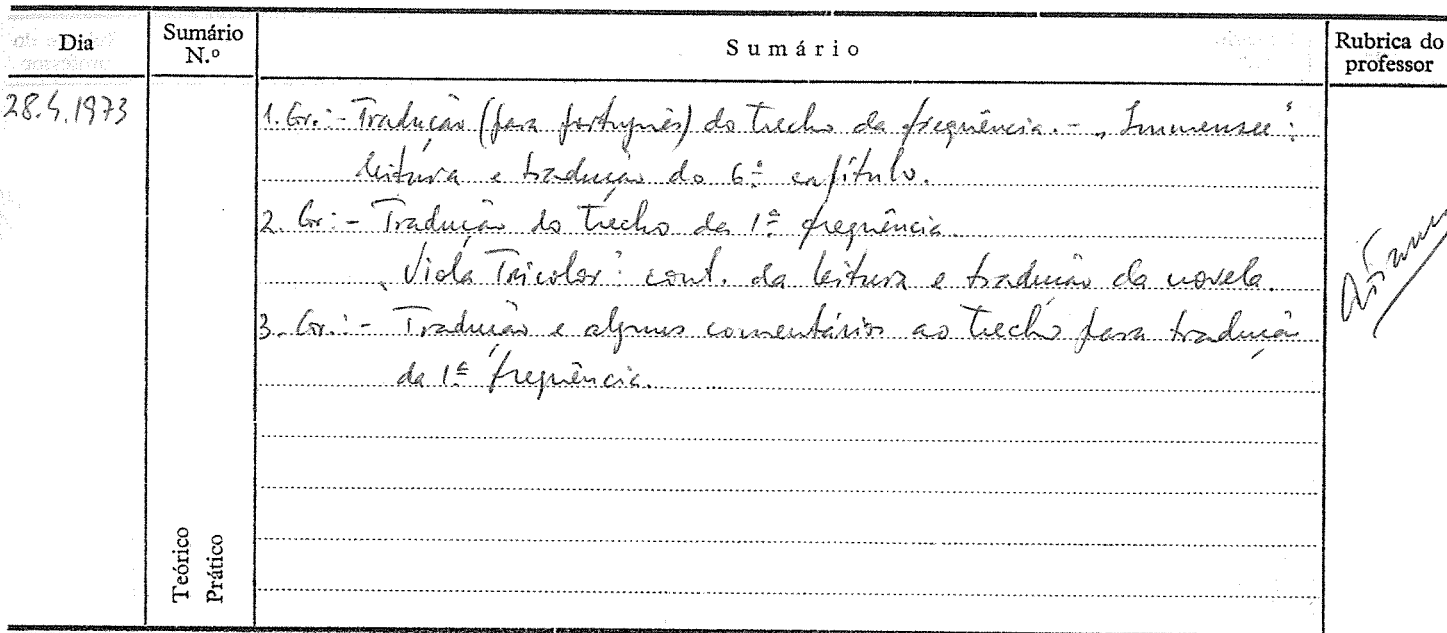 Dia
Sumário N.º
Sumário
Rubrica do professor
28.4.1973
1. Gr.:- Tradução (para português) do trecho da frequência. - „Immensee“:
leitura e tradução do 6.º capítulo.
2. Gr:- Tradução do trecho da 1ª frequência.
„Viola Tricolor“: cont. da leitura e tradução da novela.
3. Gr.:- Tradução e alguns comentários ao trecho para tradução
da 1ª frequência.
Teórico
Prático